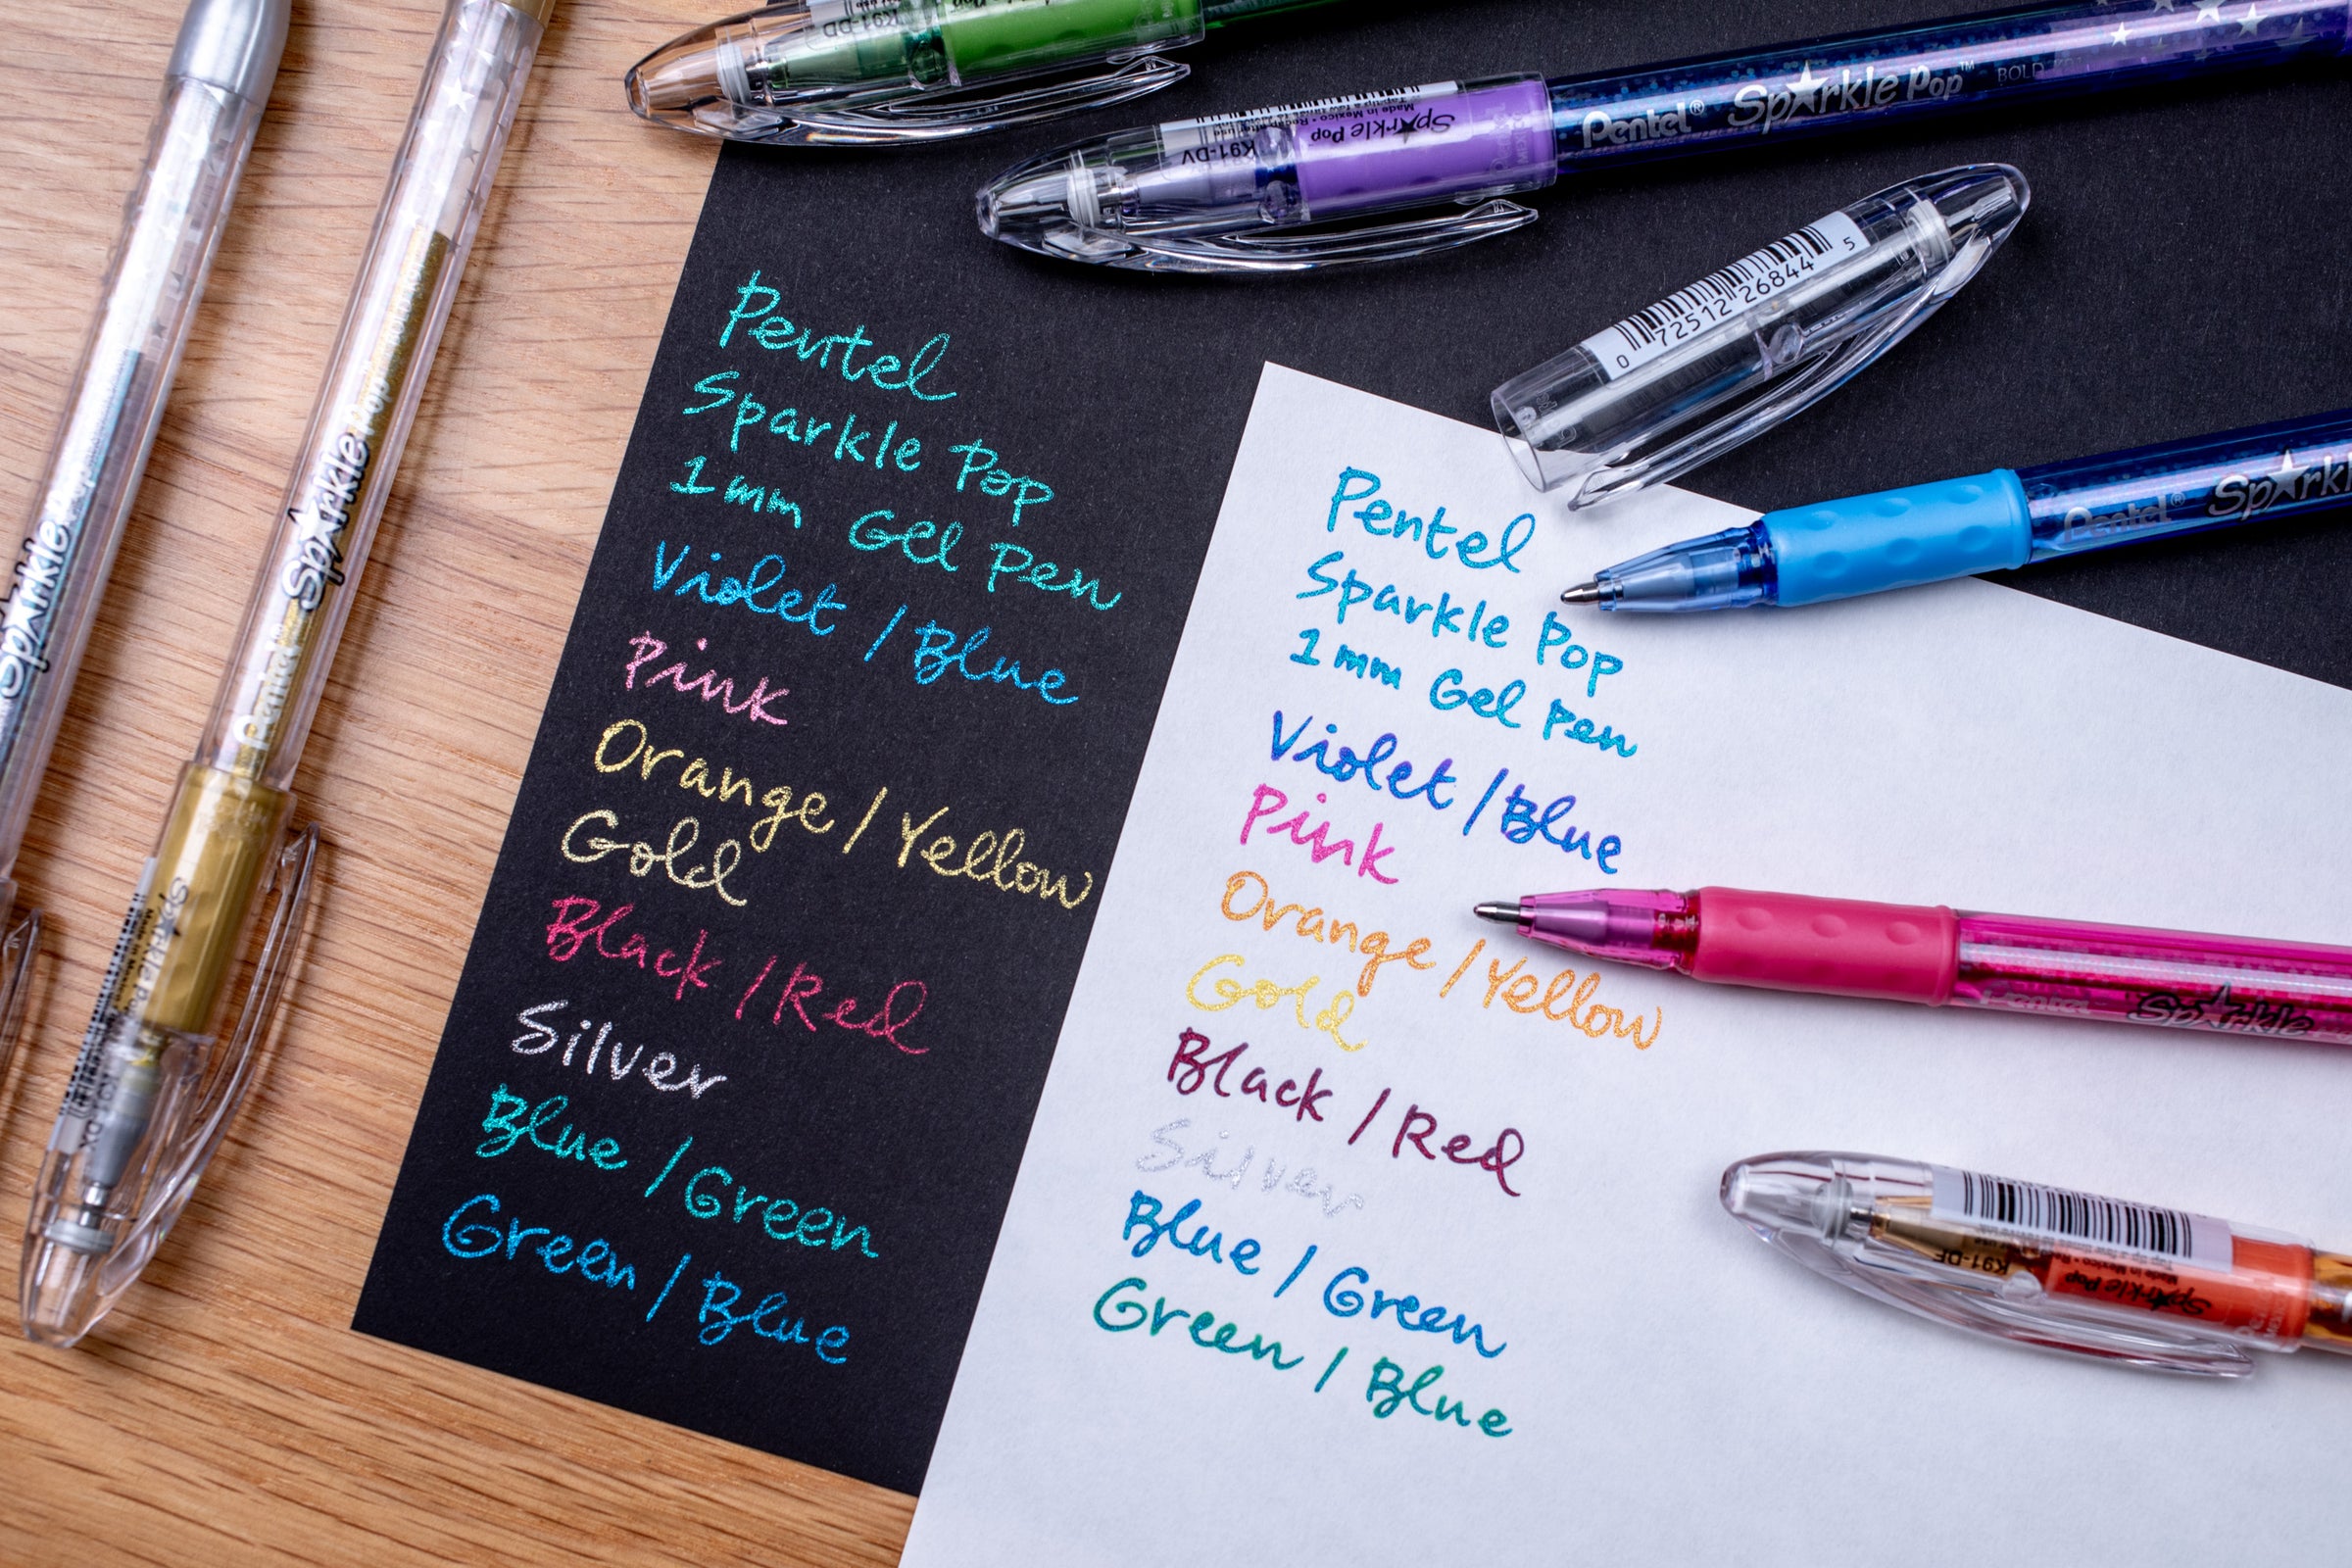 K91-DD
Sparkle Pop
Made in Mexico
K91-DV
Pentel® Sparkle Pop™ BOLD
0 72512 26844 5
Pentel
Sparkle Pop
1mm Gel Pen
Violet / Blue
Pink
Orange / Yellow
Gold
Black / Red
Silver
Blue / Green
Green / Blue
Pentel
Sparkle Pop
1mm Gel Pen
Violet / Blue
Pink
Orange / Yellow
Gold
Black / Red
Silver
Blue / Green
Green / Blue
Pentel® Sparkl
Pentel Sparkle
K91-DF
Sparkle Pop
Made in Mexico
Sparkle Pop
Pentel Sparkle Pop
Sparkle Pop
K91-DX